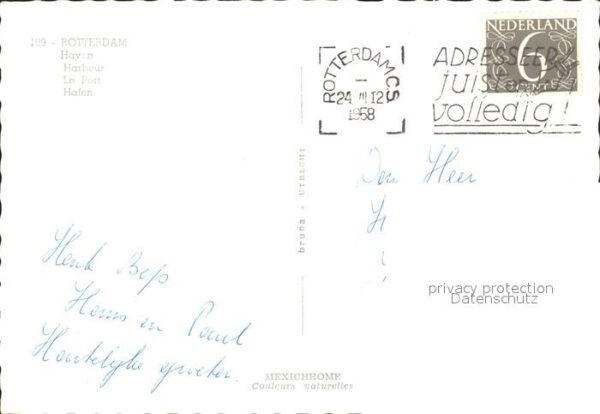 109 - ROTTERDAM
Haven
Harbour
Le Port
Hafen
NEDERLAND
6
CENT
ROTTERDAM C.S
24 VI 12
1958
ADRESSEER
juist
volledig!
bruna - UTRECHT
Den Heer
H
privacy protection
Datenschutz
Henk Bep
Hans en Paul
Hartelijke groeten.
MEXICHROME
Couleurs naturelles